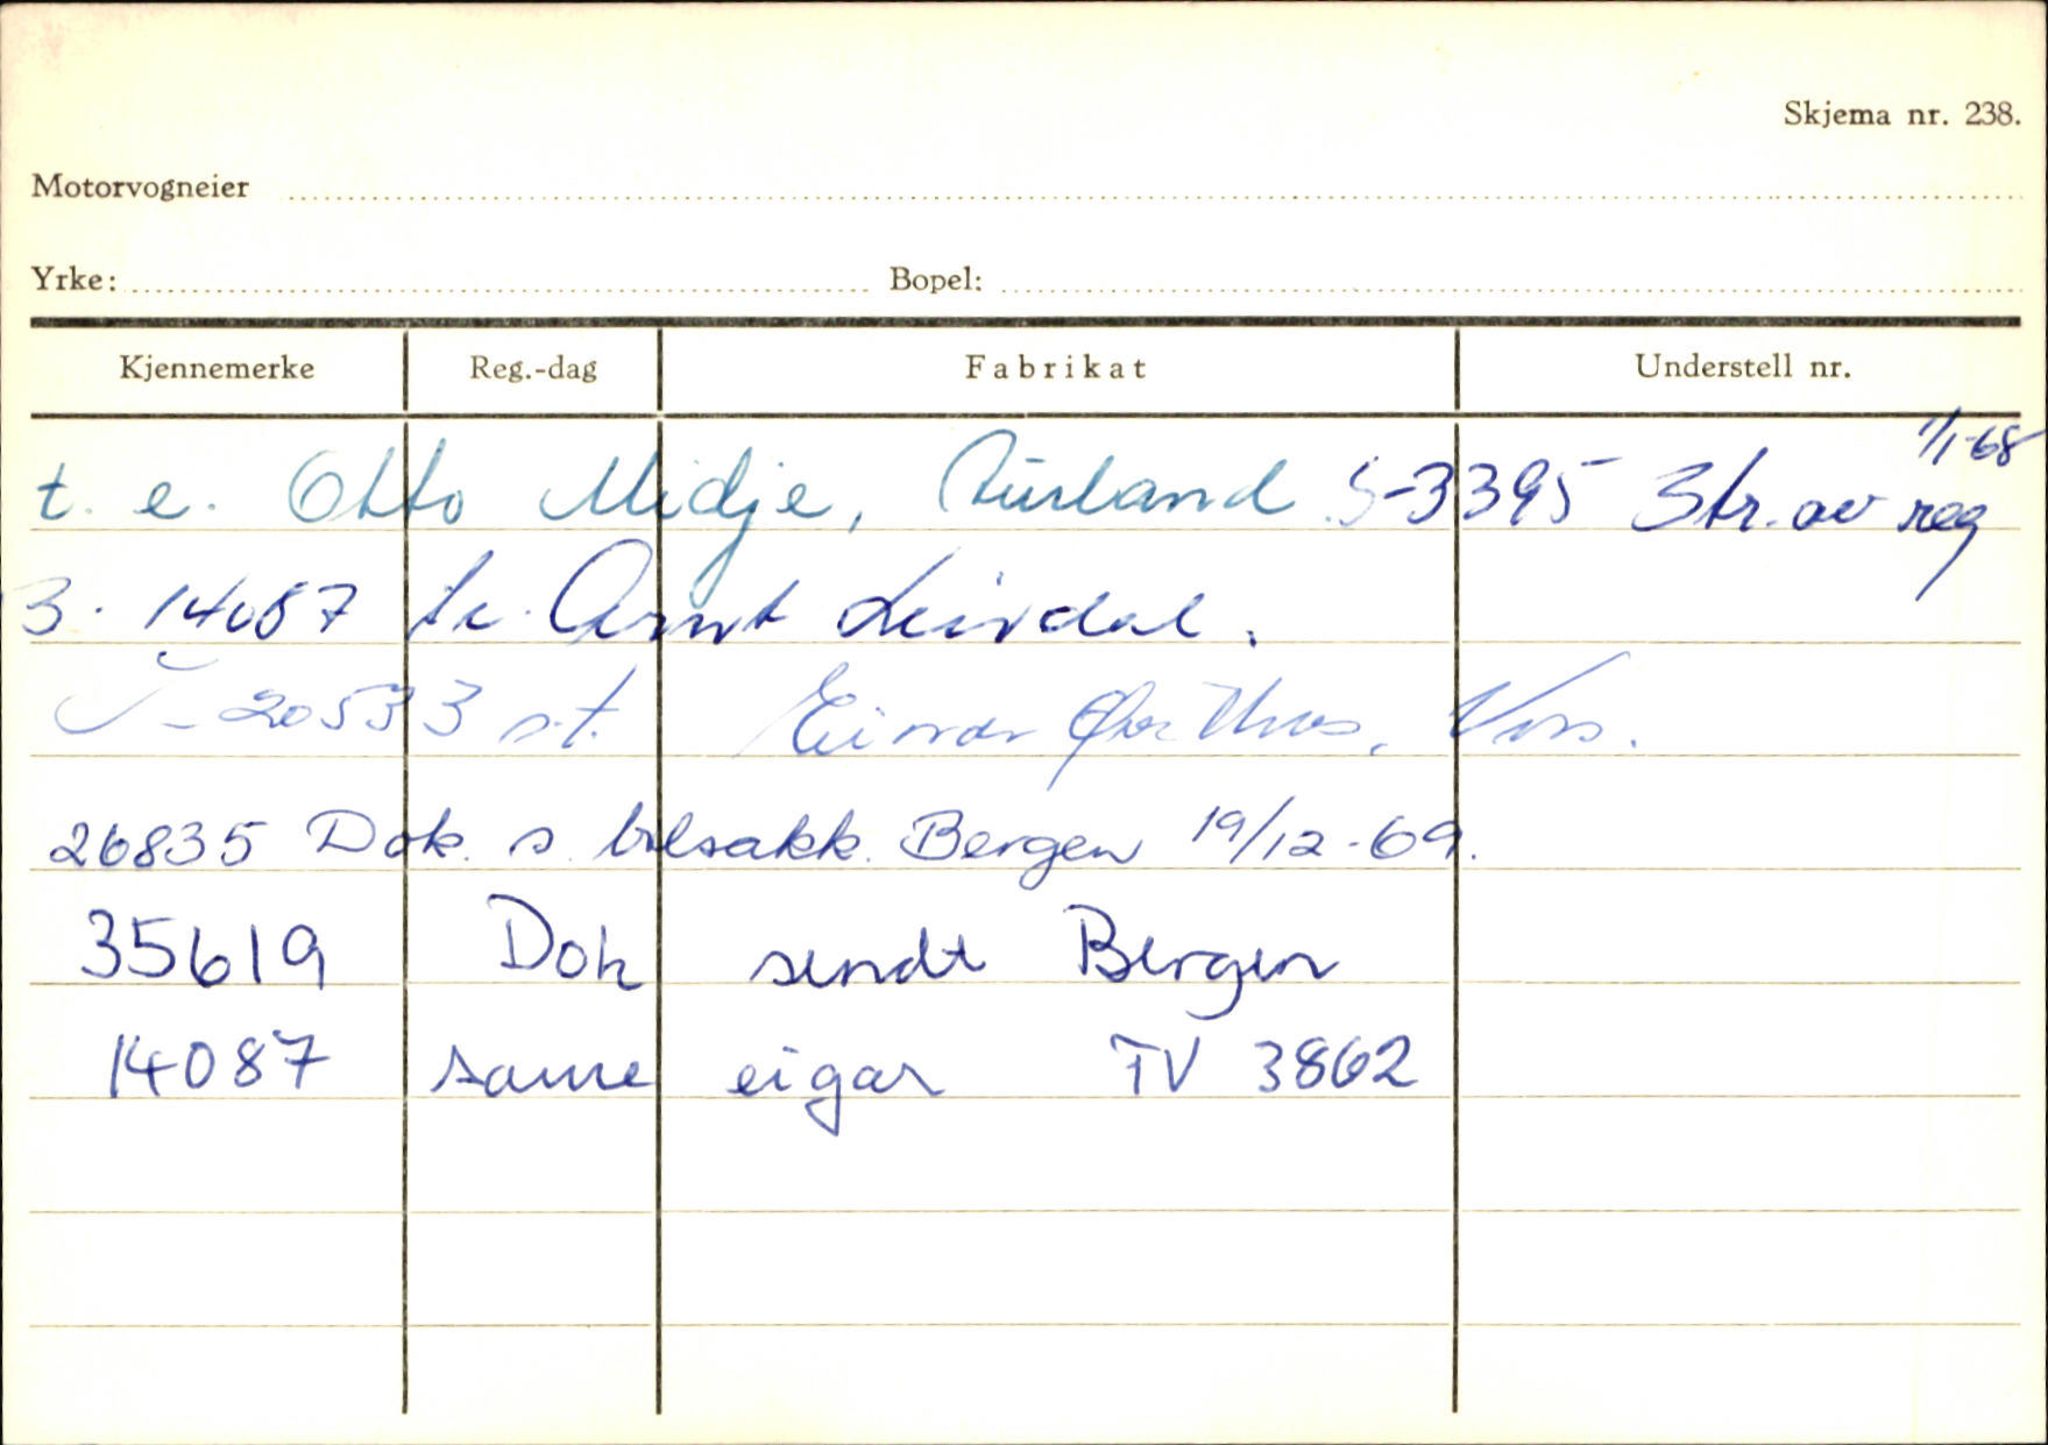 Skjema nr. 238.
Motorvogneier
Yrke: Bopel:
Kjennemerke Reg.-dag Fabrikat Understell nr.
1/1-68
t. e. Otto Midje, Aurland S-3395 Str. av reg
3. 14087 Arnt Leirdal.
20533 s.t. Einar Voss.
26835 Dok. s. bilsakk. Bergen 19/12-69.
35619 Dok sendt Bergen
14087 same eigar TV 3862